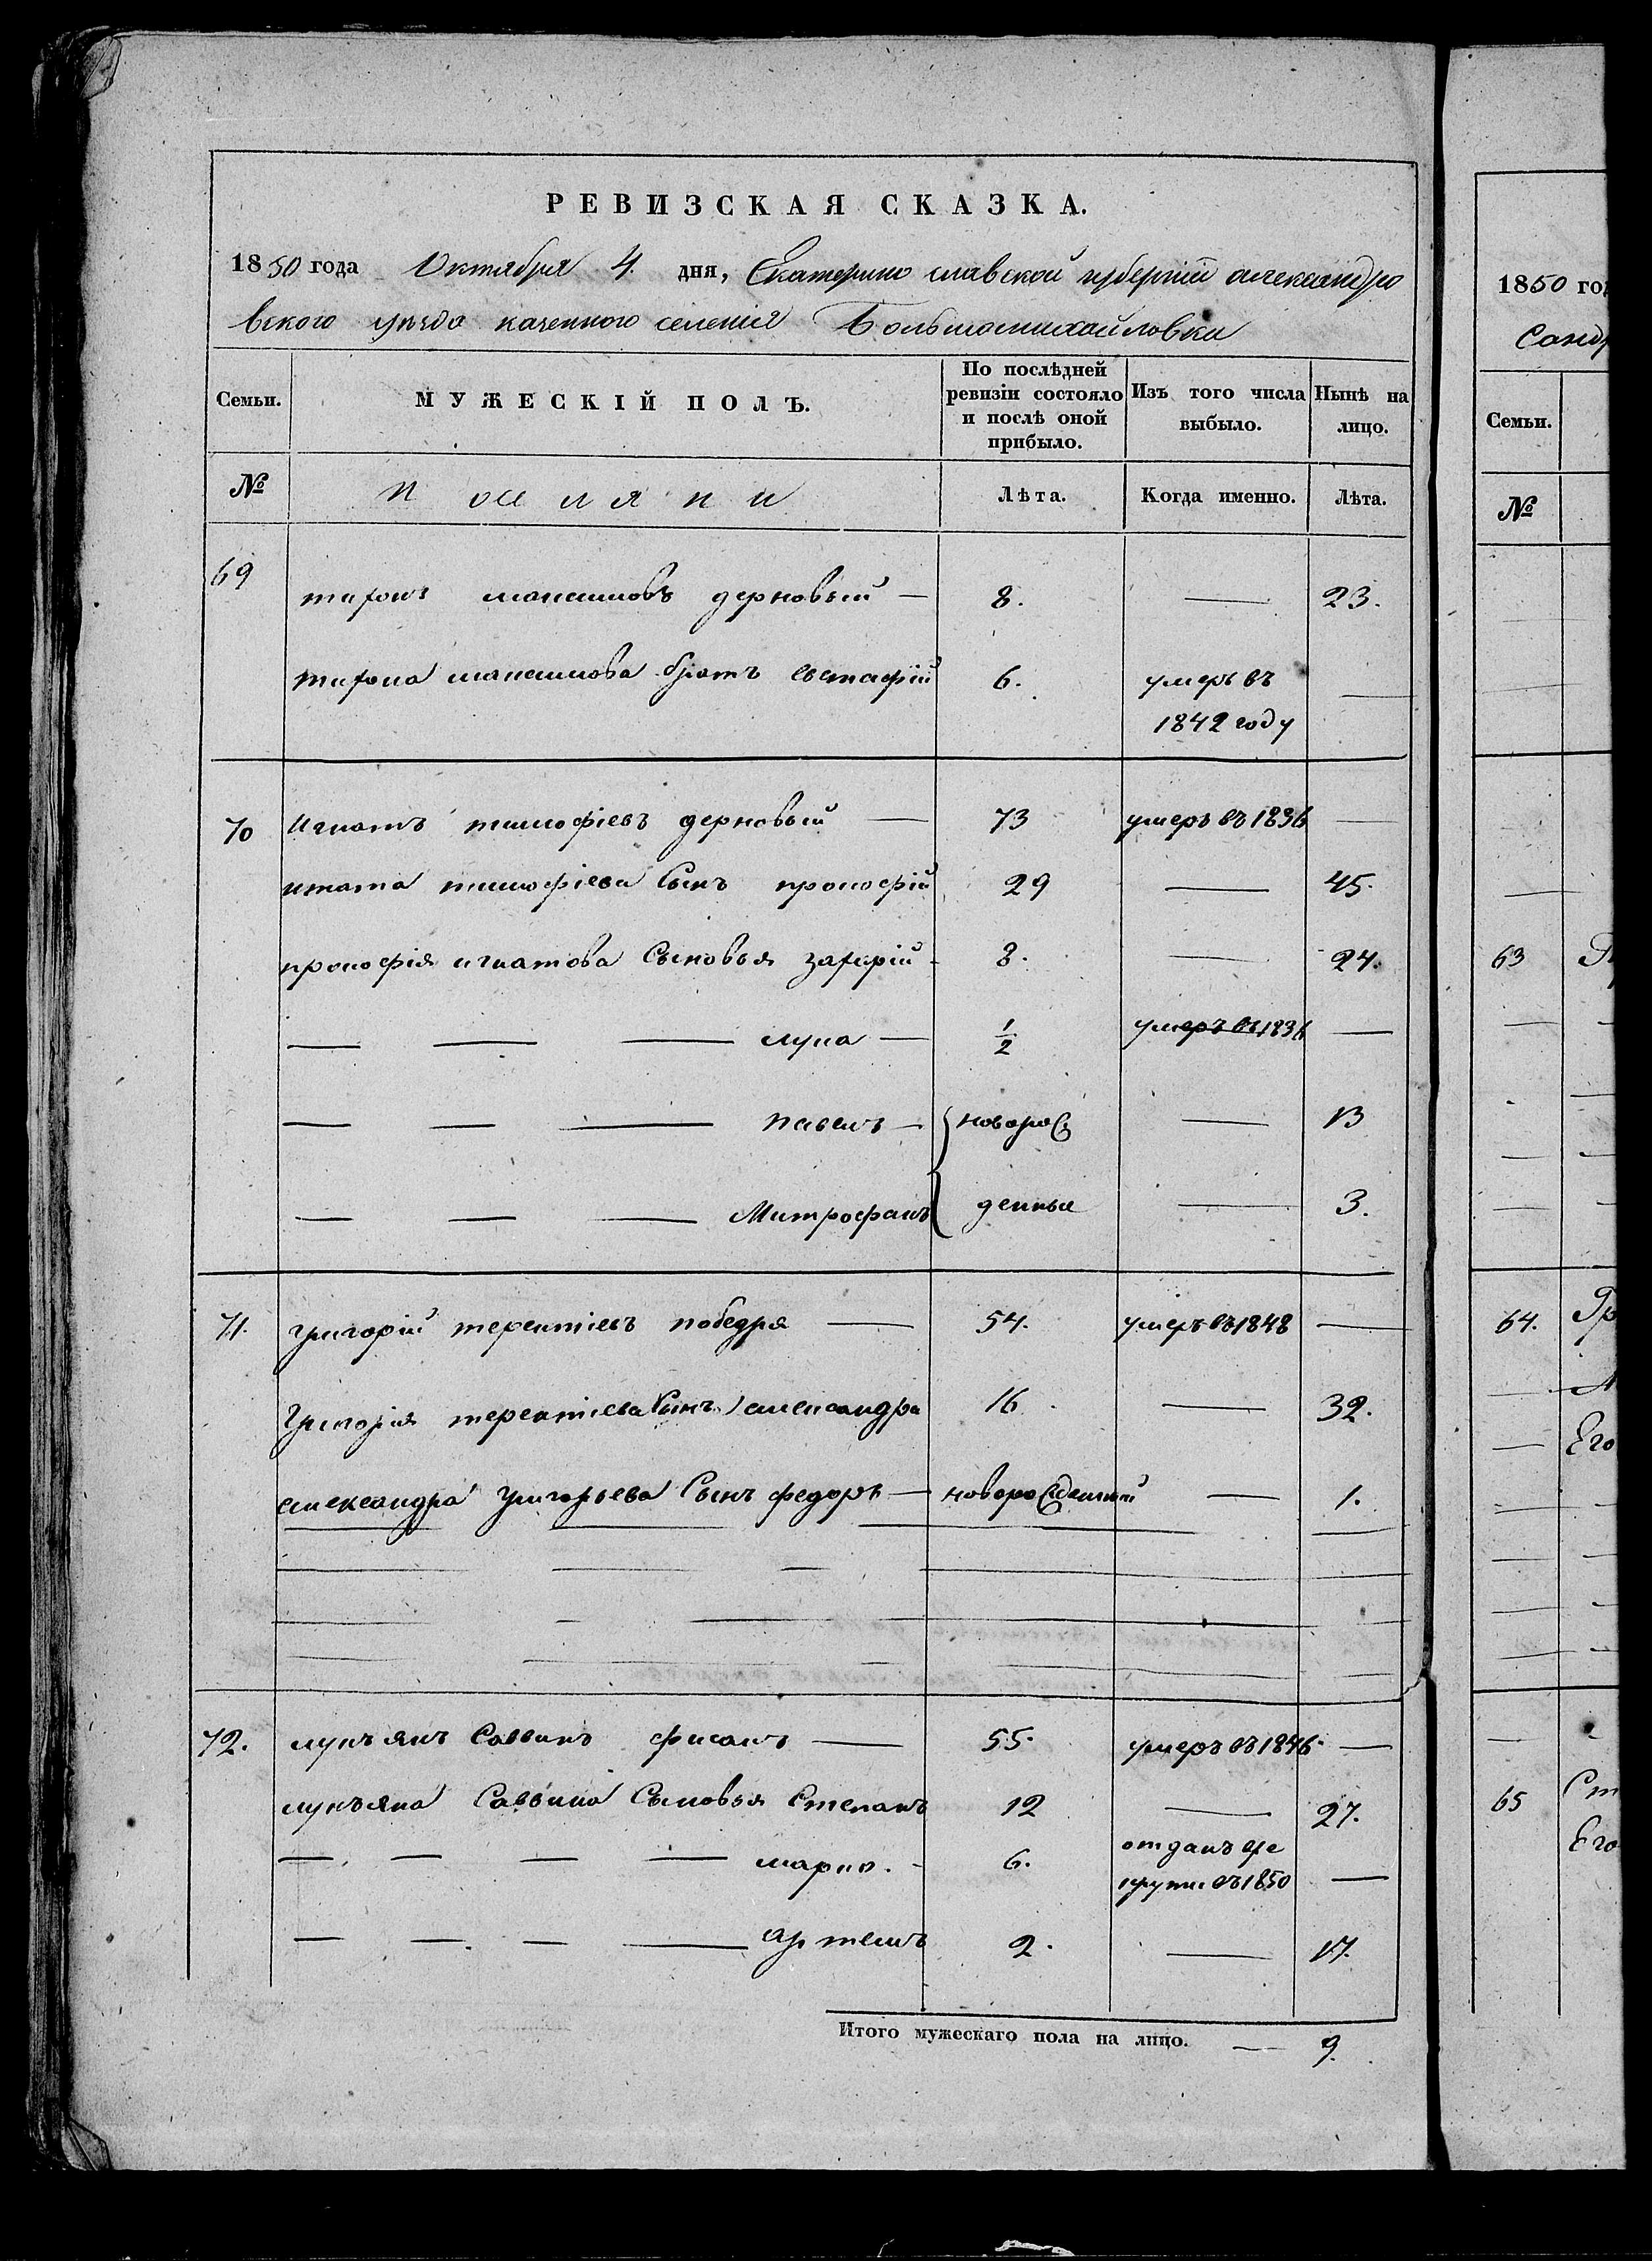 РЕВИЗСКАЯ СКАЗКА.
1850 года Октября 4. дня, Екатерино славской губерніи александро
вского уезда казенного селенія Большомихайловки
Семьи. МУЖЕСКІЙ ПОЛЪ. По послѣдней ревизіи состояло и послѣ оной прибыло. Изъ того числа выбыло. Нынѣ на лицо.
№ поселяни Лѣта. Когда именно. Лѣта.
69 тихонъ максимовъ дерновый — 8. — 23.
тихона максимова братъ евстафій 6. умеръ въ —
1842 году
70 Игнатъ тимофіевъ дерновый — 73 умеръ въ 1836 —
игната тимофіева Сынъ прокофій 29 — 45.
прокофія игнатова Сыновья захарій - 8. — 24.
— — — лука — 1/2 умеръ въ 1836 —
— — — павелъ — новорож — 13
— — — Митрофанъ денные — 3.
71. григорій терентіевъ победря — 54. умеръ въ 1848 —
Григорія терентіева Сынъ александра 16 — 32.
александра Григорьева Сынъ федоръ — новорожденный — 1.
72. лукъянъ Саввинъ фисанъ — 55. умеръ въ 1846. —
лукъяна Саввина Сыновья Степанъ 12 — 27.
— — — — марко. - 6. отданъ —
въ 1850
— — — — артемъ 2. — 17.
Итого мужескаго пола на лицо. — 9.
1850 год
Санд
Семьи.
№
63
64. Гр
Его
65 Ст
Его